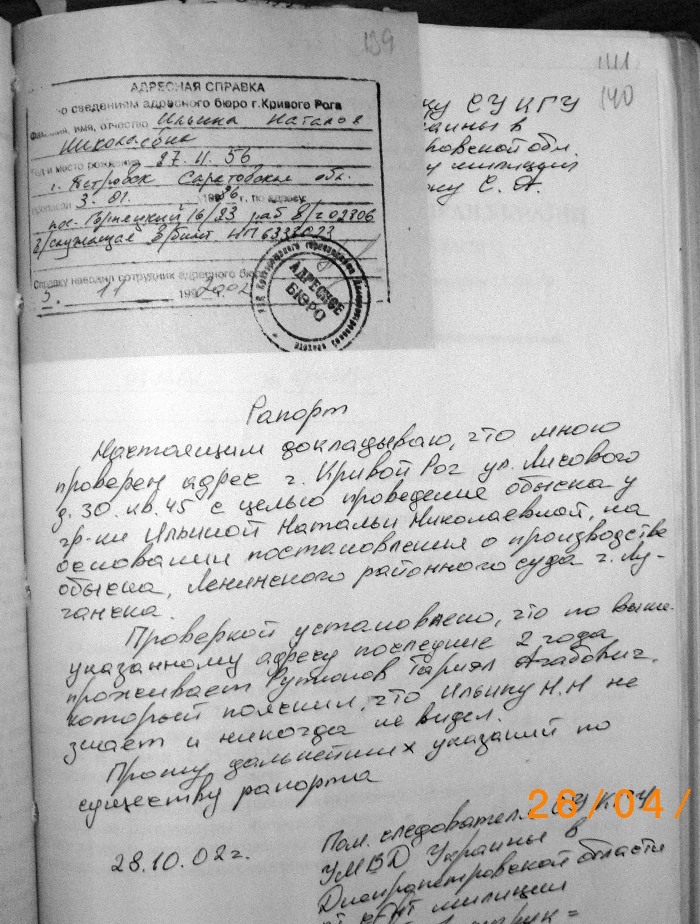 139
141.
140
АДРЕСНАЯ СПРАВКА
По сведениям адресного бюро г.Кривого Рога
Фамилия, имя, отчество Ильина Наталья
Николаевна
Год и место рождения 27.11.56
Саратовской обл.
3.01. г., по адресу:
16/23
Справку наводил сотрудник адресного бюро
5. 11 2002
АДРЕСНОЕ
БЮРО
СУ КГУ
в
обл.
милиции
С. А.
Рапорт
Настоящим докладываю, что мною
проверен адрес г. Кривой Рог ул. Лисового
д. 30. кв. 45 с целью проведения обыска у
гр-ки Ильиной Натальи Николаевной, на
основании постановления о производстве
обыска, Ленинского районного суда г. Лу-
ганска.
Проверкой установлено, что по выше-
указанному адресу последние 2 года
проживает Агабович.
который пояснил, что Ильину Н.Н не
знает и никогда не видел.
Прошу дальнейших указаний по
существу рапорта
26/04/
28.10.02г.
Пом. следователя СУ КГУ
УМВД Украины в
Днепропетровской области
милиции